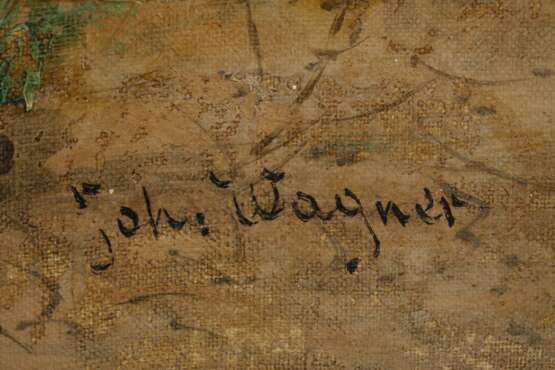 Joh. Wagner